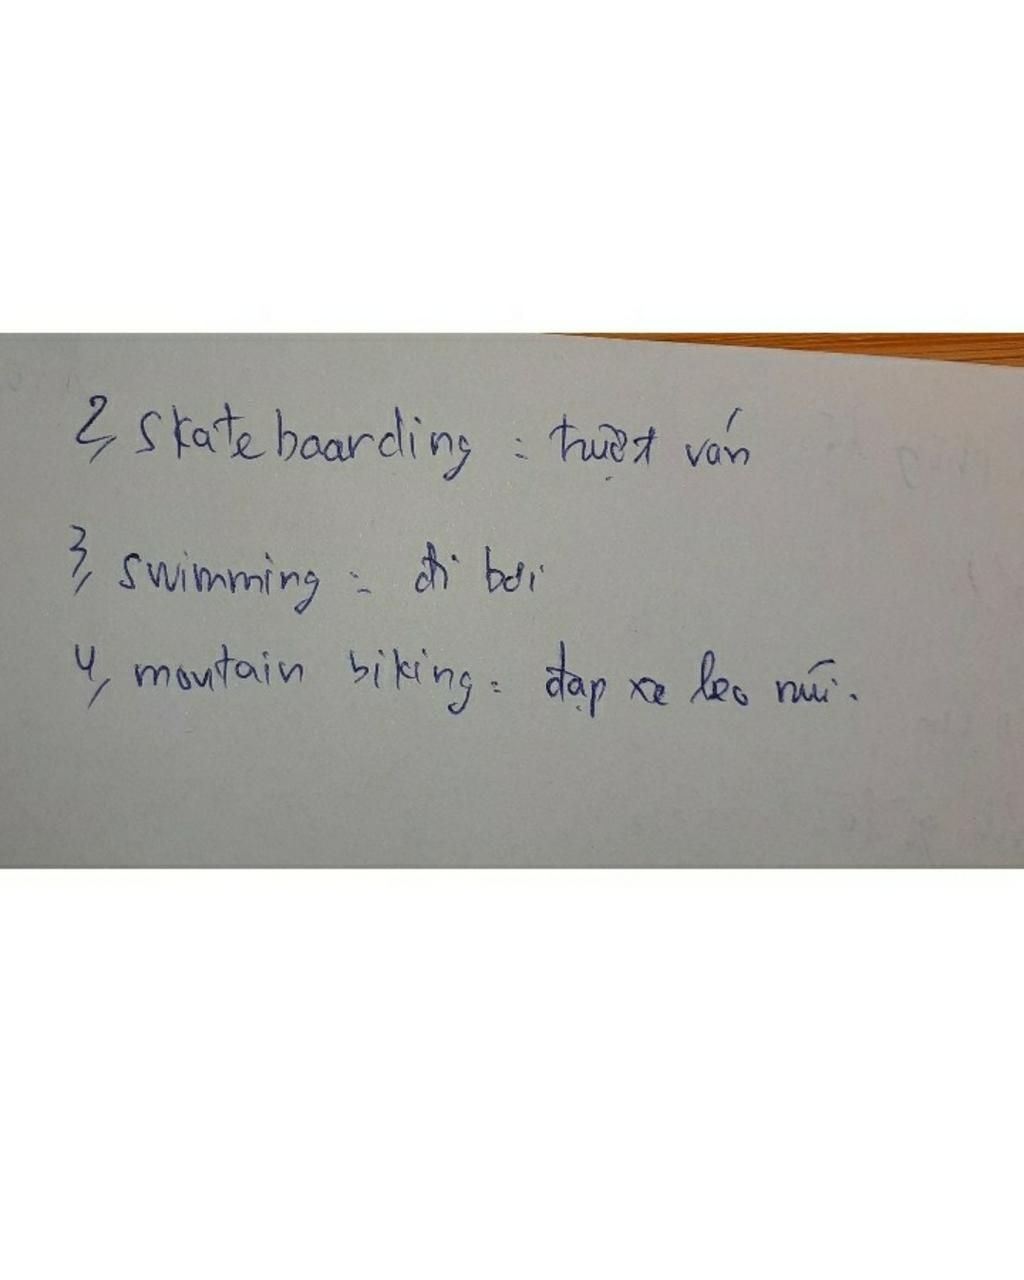 2, skate baarding : trượt ván
3, swimming : đi bơi
4, moutain biking : đạp xe leo núi.